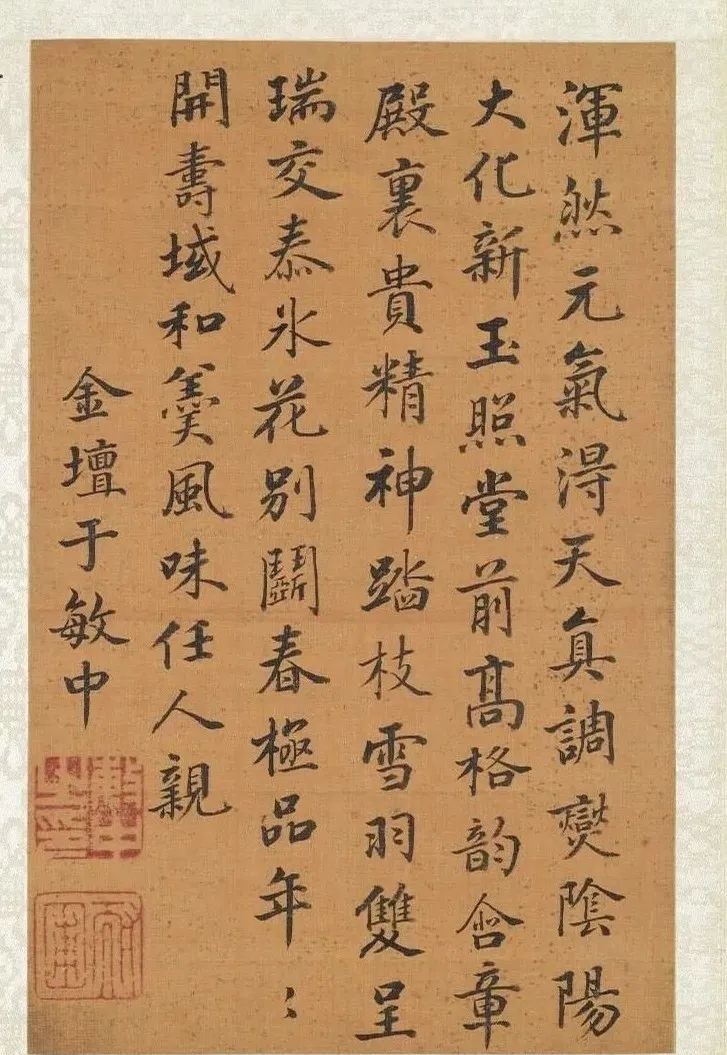 渾然元氣得天真調燮陰陽
大化新玉照堂前高格韵含章
殿裏貴精神踏枝雪羽雙呈
瑞交泰氷花別鬭春極品年〻
開壽域和羹風味任人親
金壇于敏中